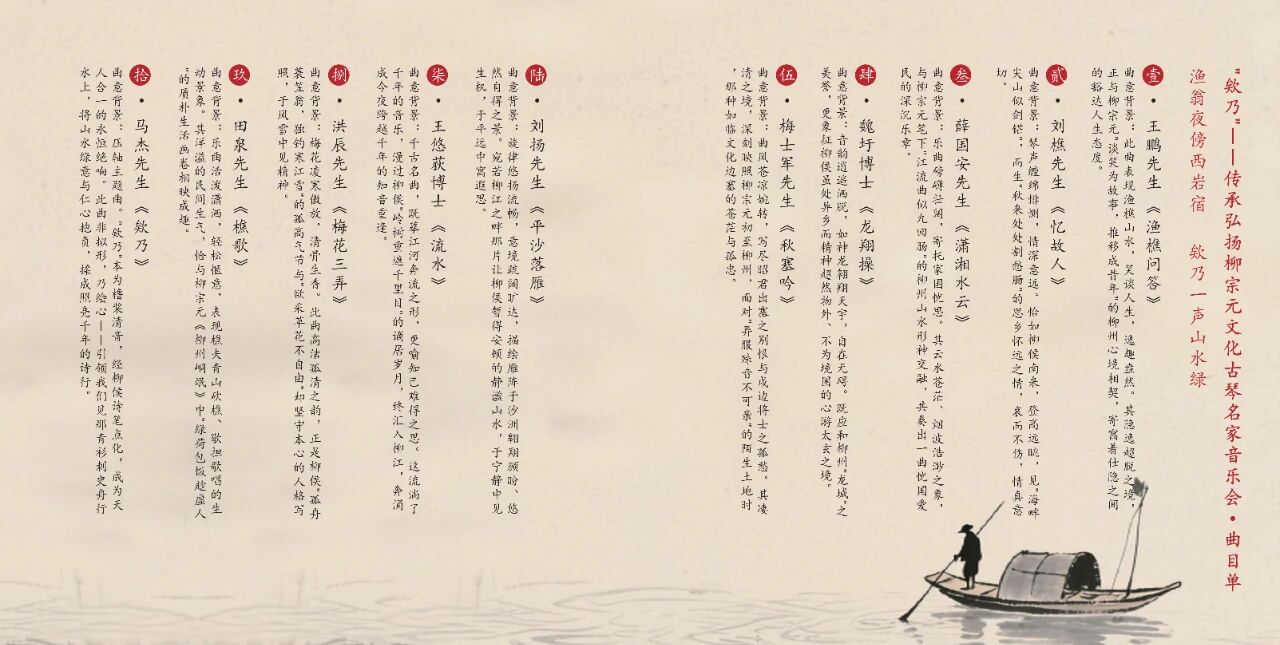 “欸乃”——传承弘扬柳宗元文化古琴名家音乐会·曲目单
渔翁夜傍西岩宿 欸乃一声山水绿
壹·王鹏先生《渔樵问答》
曲意背景：此曲表现渔樵山水，笑谈人生，逸趣盎然。其隐逸超脱之境，
正与柳宗元“谈笑为故事，推移成昔年”的柳州心境相契，寄寓着仕隐之间
的豁达人生态度。
贰·刘樵先生《忆故人》
曲意背景：琴声缠绵悱恻，情深意远。恰如柳侯南来，登高远眺，见“海畔
尖山似剑铓”，而生“秋来处处割愁肠”的思乡怀远之情，哀而不伤，情真意
切。
叁·薛国安先生《潇湘水云》
曲意背景：乐曲磅礴壮阔，寄托家国忧思。其云水苍茫、烟波浩渺之象，
与柳宗元笔下“江流曲似九回肠”的柳州山水形神交融，共奏出一曲忧国爱
民的深沉乐章。
肆·魏圩博士《龙翔操》
曲意背景：音韵逍遥洒脱，如神龙翱翔天宇，自在无碍。既应和柳州“龙城”之
美誉，更象征柳侯虽处异乡而精神超然物外、不为境囿的心游太玄之境。
伍·梅士军先生《秋塞吟》
曲意背景：曲风苍凉婉转，写尽昭君出塞之别恨与戍边将士之孤愁。其凄
清之境，深刻映照柳宗元初至柳州，面对“异服殊音不可亲”的陌生土地时
，那种如临文化边塞的苍茫与孤忠。
陆·刘扬先生《平沙落雁》
曲意背景：旋律悠扬流畅，意境疏阔旷达，描绘雁阵于沙洲翱翔顾盼、悠
然自得之景。宛若柳江之畔那片让柳侯暂得安顿的静谧山水，于宁静中见
生机，于平远中寓遐思。
柒·王悠荻博士《流水》
曲意背景：千古名曲，既摹江河奔流之形，更喻知己难得之思。这流淌了
千年的音乐，漫过柳侯“岭树重遮千里目”的谪居岁月，终汇入柳江，奔涌
成今夜跨越千年的知音重逢。
捌·洪辰先生《梅花三弄》
曲意背景：梅花凌寒傲放，清骨生香。此曲高洁孤清之韵，正是柳侯“孤舟
蓑笠翁，独钓寒江雪”的孤高气节与“欲采苹花不自由”却坚守本心的人格写
照，于风雪中见精神。
玖·田泉先生《樵歌》
曲意背景：乐曲活泼潇洒，轻松惬意，表现樵夫青山吹樵、歌担歌唱的生
动景象。其洋溢的民间生气，恰与柳宗元《柳州峒氓》中“绿荷包饭趁虚人
”的质朴生活画卷相映成趣。
拾·马杰先生《欸乃》
曲意背景：压轴主题曲。“欸乃”本为橹桨清音，经柳侯诗笔点化，成为天
人合一的永恒绝响。此曲非拟形，乃绘心——引领我们见那青衫刺史舟行
水上，将山水绿意与仁心抱负，揉成照亮千年的诗行。